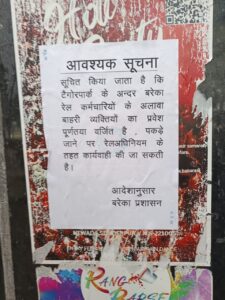 आवश्यक सूचना
सूचित किया जाता है कि
टैगोरपार्क के अन्दर बरेका
रेल कर्मचारियों के अलावा
बाहरी व्यक्तियों का प्रवेश
पूर्णतया वर्जित है . पकड़े
जाने पर रेलअधिनियम के
तहत कार्यवाही की जा सकती
है।
आदेशानुसार
बरेका प्रशासन
RANG
BARSE